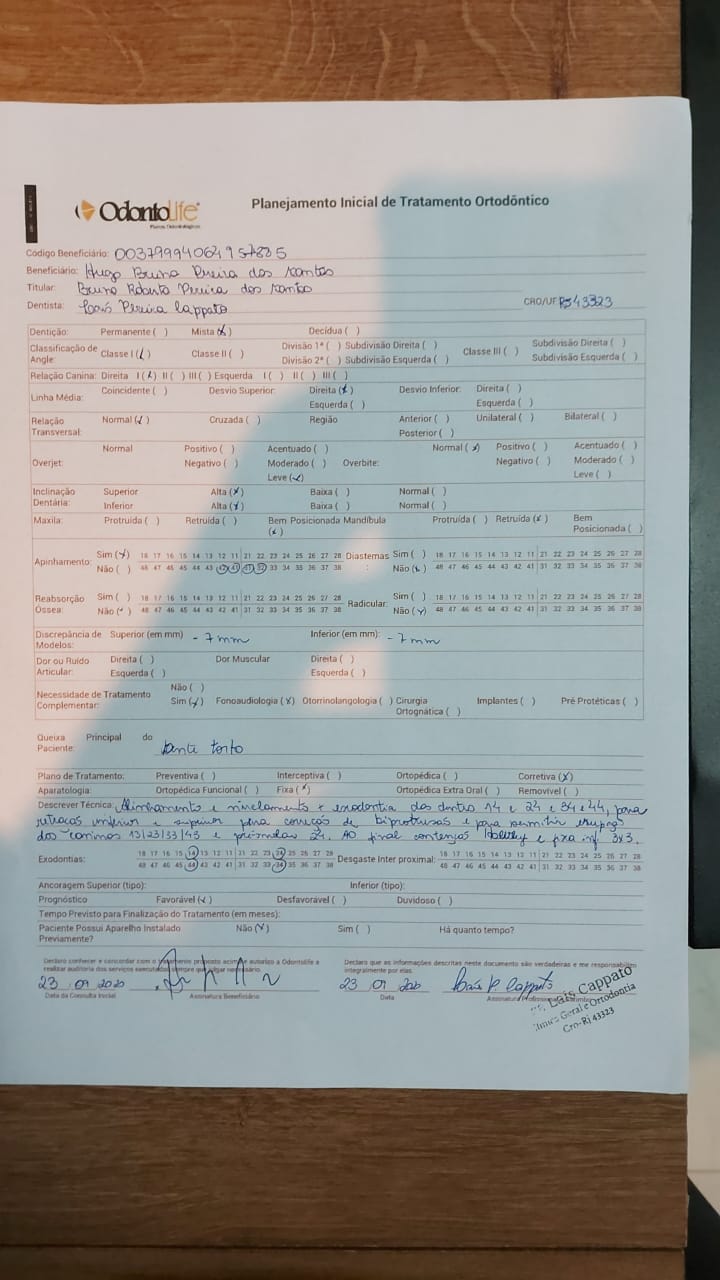 Odontolife
Planos Odontológicos
Planejamento Inicial de Tratamento Ortodôntico
Código Beneficiário:
Beneficiário: Hugo Bruno Pereira dos Santos
Titular: Bruno Roberto Pereira dos Santos
Dentista: Laís Pereira Cappato CRO/UF RJ 43323
Dentição: Permanente ( ) Mista (x) Decídua ( )
Classificação de Angle: Classe I (x) Classe II ( ) Divisão 1ª ( ) Subdivisão Direita ( ) Classe III ( ) Subdivisão Direita ( )
Divisão 2ª ( ) Subdivisão Esquerda ( ) Subdivisão Esquerda ( )
Relação Canina: Direita I (x) II ( ) III ( ) Esquerda I ( ) II ( ) III ( )
Linha Média: Coincidente ( ) Desvio Superior: Direita (x) Desvio Inferior: Direita ( )
Esquerda ( ) Esquerda ( )
Relação Transversal: Normal (x) Cruzada ( ) Região Anterior ( ) Unilateral ( ) Bilateral ( )
Posterior ( )
Overjet: Normal Positivo ( ) Acentuado ( ) Overbite: Normal (x) Positivo ( ) Acentuado ( )
Negativo ( ) Moderado ( ) Negativo ( ) Moderado ( )
Leve (x) Leve ( )
Inclinação Dentária: Superior Alta (x) Baixa ( ) Normal ( )
Inferior Alta (x) Baixa ( ) Normal ( )
Maxila: Protruída ( ) Retruída ( ) Bem Posicionada (x) Mandíbula Protruída ( ) Retruída (x) Bem Posicionada ( )
Apinhamento: Sim (x) 18 17 16 15 14 13 12 11 21 22 23 24 25 26 27 28 Diastemas: Sim ( ) 18 17 16 15 14 13 12 11 21 22 23 24 25 26 27 28
Não ( ) 48 47 46 45 44 43 42 41 31 32 33 34 35 36 37 38 Não (x) 48 47 46 45 44 43 42 41 31 32 33 34 35 36 37 38
Reabsorção Óssea: Sim ( ) 18 17 16 15 14 13 12 11 21 22 23 24 25 26 27 28 Radicular: Sim ( ) 18 17 16 15 14 13 12 11 21 22 23 24 25 26 27 28
Não (x) 48 47 46 45 44 43 42 41 31 32 33 34 35 36 37 38 Não (x) 48 47 46 45 44 43 42 41 31 32 33 34 35 36 37 38
Discrepância de Modelos: Superior (em mm) - 7 mm Inferior (em mm): - 7 mm
Dor ou Ruído Articular: Direita ( ) Dor Muscular Direita ( )
Esquerda ( ) Esquerda ( )
Necessidade de Tratamento Complementar: Não ( )
Sim (x) Fonoaudiologia (x) Otorrinolangologia ( ) Cirurgia Ortognática ( ) Implantes ( ) Pré Protéticas ( )
Queixa Principal do Paciente: dente torto
Plano de Tratamento: Preventiva ( ) Interceptiva ( ) Ortopédica ( ) Corretiva (x)
Aparatologia: Ortopédica Funcional ( ) Fixa (x) Ortopédica Extra Oral ( ) Removível ( )
Descrever Técnica: Alinhamento e nivelamento e exodontia dos dentes 14 e 24 e 34 e 44, para
retração inferior e superior para correção de biprotrusão e para permitir erupção
dos caninos 13/23/33/43 e 24. Ao final contenção Hawley e fixa inf. 3x3.
Exodontias: 18 17 16 15 14 13 12 11 21 22 23 24 25 26 27 28 Desgaste Inter proximal: 18 17 16 15 14 13 12 11 21 22 23 24 25 26 27 28
48 47 46 45 44 43 42 41 31 32 33 34 35 36 37 38 48 47 46 45 44 43 42 41 31 32 33 34 35 36 37 38
Ancoragem Superior (tipo): Inferior (tipo):
Prognóstico Favorável (x) Desfavorável ( ) Duvidoso ( )
Tempo Previsto para Finalização do Tratamento (em meses):
Paciente Possui Aparelho Instalado Previamente? Não (x) Sim ( ) Há quanto tempo?
Declaro conhecer e concordar com o tratamento proposto acima e autorizo a Odontolife a
realizar auditoria dos serviços executados sempre que julgar necessário.
Declaro que as informações descritas neste documento são verdadeiras e me responsabilizo
integralmente por elas.
23 09 2020
23 09 2020 Laís P. Cappato
Data da Consulta Inicial Assinatura Beneficiário Data
Laís Cappato
Clínica Geral e Ortodontia
Cro-Rj 43323